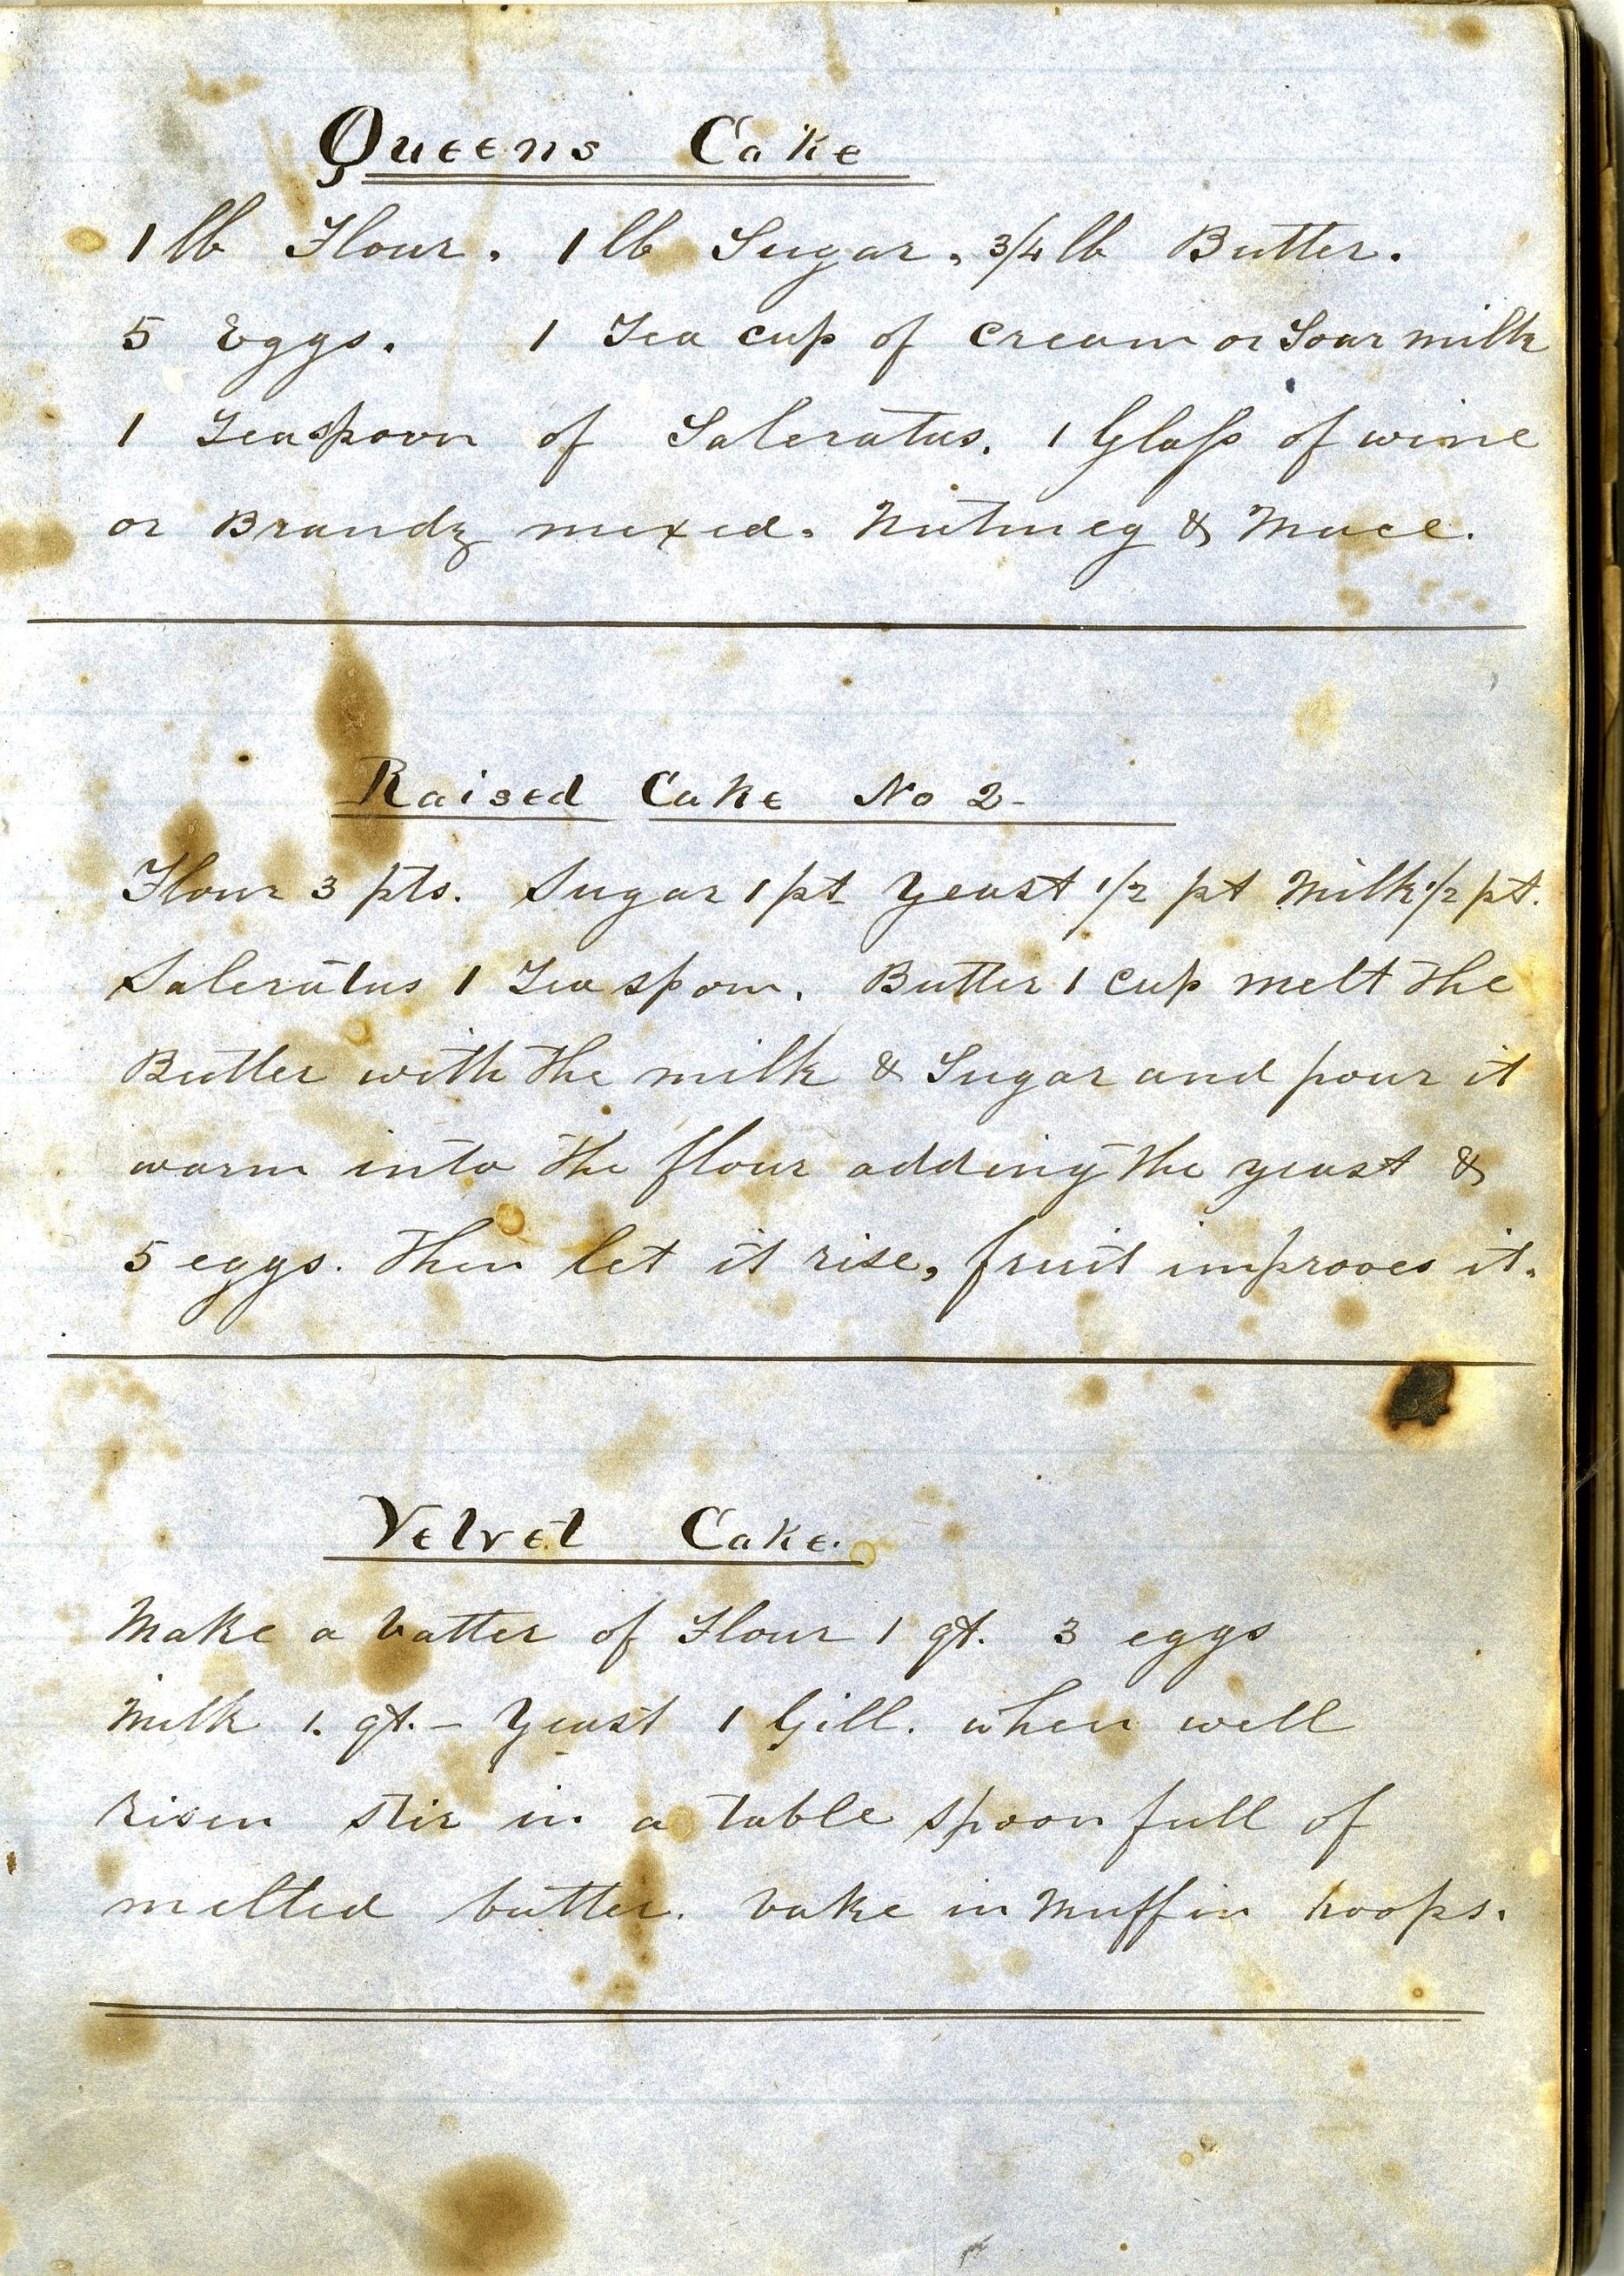 Queens Cake
1 lb Flour. 1 lb Sugar. 3/4 lb Butter.
5 Eggs. 1 Tea cup of cream or Sour milk
1 Teaspoon of Saleratus. 1 Glass of wine
or Brandy mixed. Nutmeg & Mace.
Raised Cake No 2-
Flour 3 pts. Sugar 1 pt Yeast 1/2 pt Milk 1/2 pt.
Saleratus 1 Teaspoon. Butter 1 cup melt the
Butter with the milk & Sugar and pour it
warm into the flour adding the yeast &
5 eggs. Then let it rise, fruit improves it.
Velvet Cake.
Make a batter of Flour 1 qt. 3 eggs
Milk 1. qt. - Yeast 1 Gill. when well
risen stir in a table spoon full of
melted butter. bake in Muffin hoops.